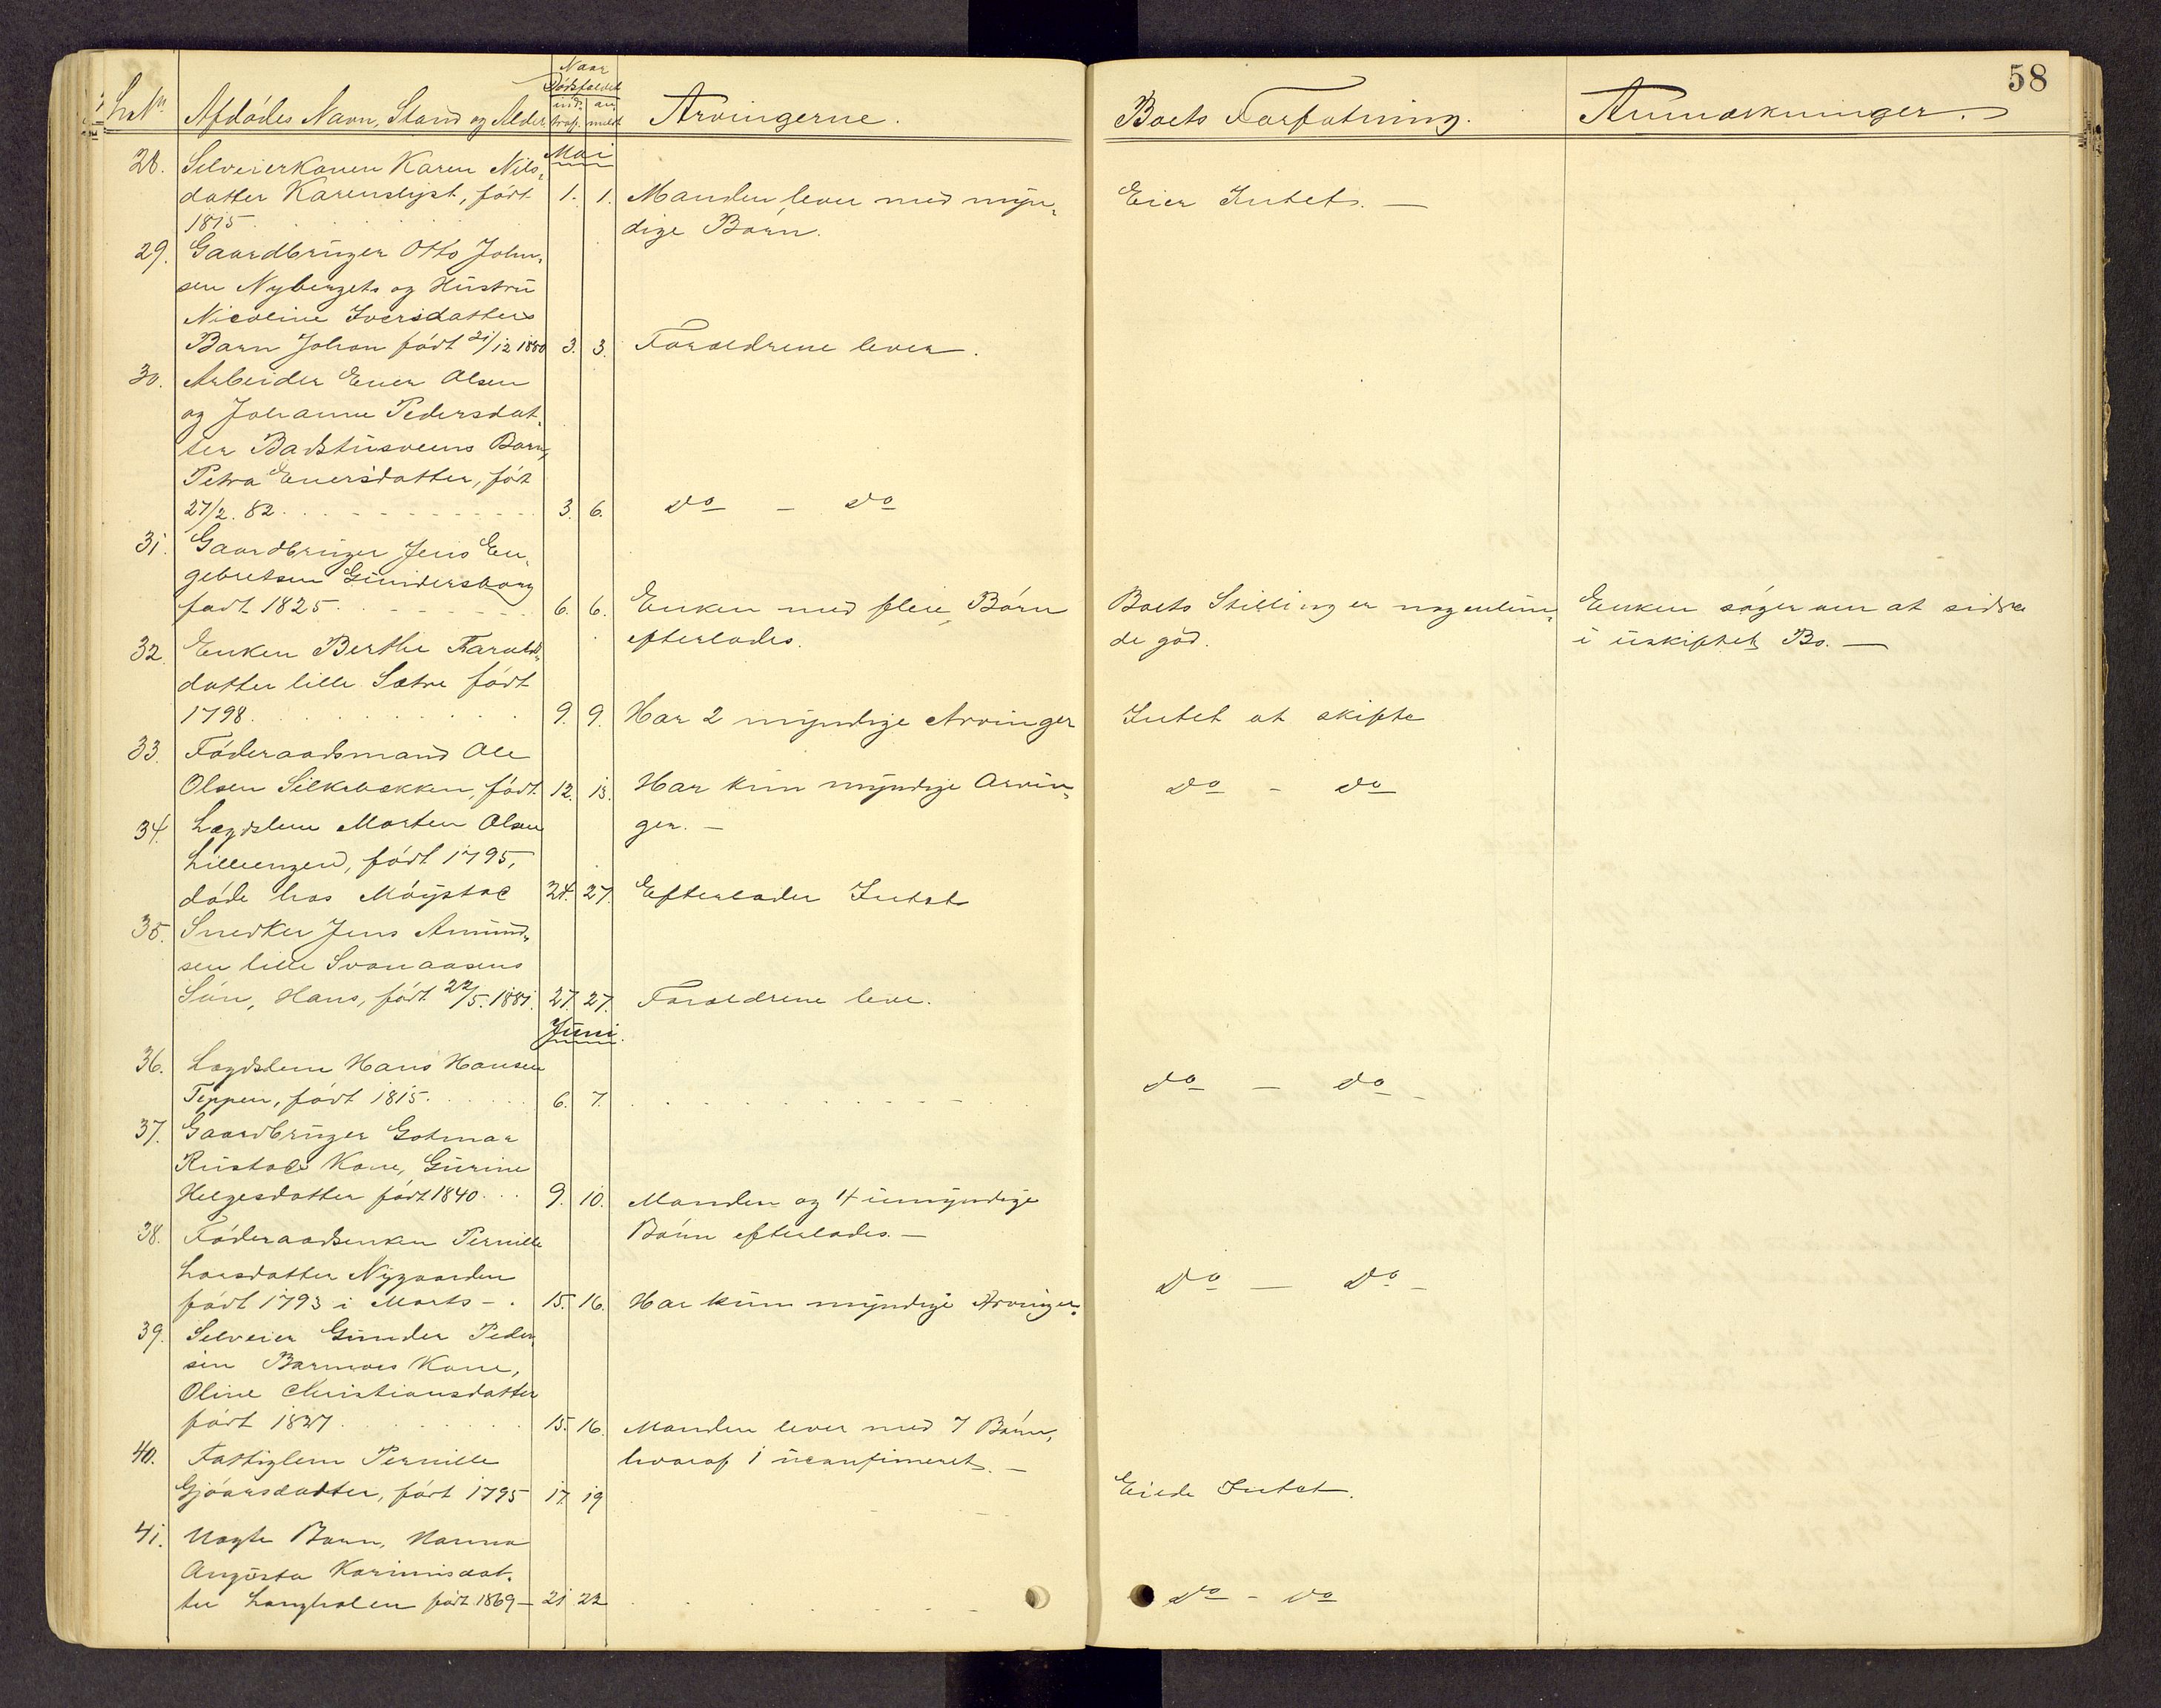 58
Naar
Dödsfaldet
Lb. Nr. Afdödes Navn, Stand og Alder. indtraf. anmeldt Arvingerne. Boets Forfatning. Anmærkninger.
Mai
28. Selveierkonen Karen Nils-
datter Karenslyst, født 1. 1. Manden lever med myn- Eier Intet. —
1815. dige Børn.
29. Gaardbruger Otto John-
sen Nybergets og Hustru
Nicoline Iversdatters
Barn Johan født 21/12 1880 3. 3. Forældrene lever.
30. Arbeider Ener Olsen
og Johanne Pedersdat-
ter Badstusveens Barn,
Petra Enersdatter, født
27/2. 82. 3. 6. do - do
31. Gaardbruger Jens En-
gebretsen Gundersborg
født 1825. 6. 6. Enken med fleie Børn Boets Stilling er nogenlun- Enken søger om at sidde
efterlades. de god. i uskiftet Bo. —
32. Enken Berthe Haralds-
datter lille Sætre født
1798. 9. 9. Har 2 myndige Arvinger Intet at skifte
33. Föderaadsmand Ole
Olsen Silkebækken, født 12. 13. Har kun myndige Arvin- do - do
34. Lægdslem Morten Olsen ger. —
Lilleengen, født 1795,
døde hos Möystad 24. 27. Efterlader Intet
35. Snedker Jens Amund-
sen lille Svenaasens
Sön, Hans, født 22/5. 1881. 27. 27. Forældrene leve.
Juni.
36. Lægdslem Hans Hansen
Teppen, født 1815. 6. 7. do - do -
37. Gaardbruger Gotmar
Rustads Kone, Gurine
Helgesdatter født 1840. 9. 10. Manden og 4 umyndige
Börn efterlades. —
38. Föderaadsenken Pernille
Larsdatter Nygaarden
født 1793 i Marts - . 15. 16. Har kun myndige Arvinger. do - do -
39. Selveier Gunder Peder-
sen Barmoes Kone,
Oline Christiansdatter
født 1827 15. 16. Manden lever med 7 Börn,
hvoraf 1 uconfirmeret. —
40. Fattiglem Pernille
Gjöarsdatter, født 1795 17. 19 Eiede Intet.
41. Uægte Barn, Hanna
Augusta Karinusdat-
ter Langholen født 1869 — 21 22 do - do